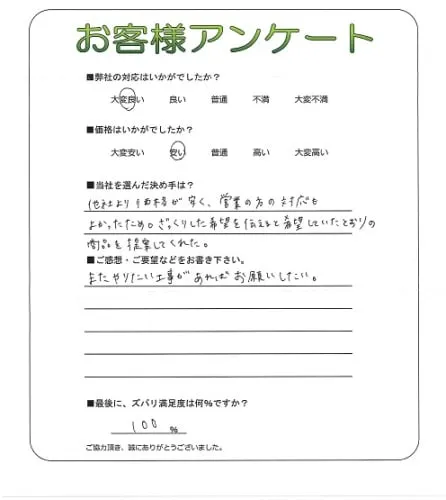 お客様アンケート
■弊社の対応はいかがでしたか？
大変良い 良い 普通 不満 大変不満
■価格はいかがでしたか？
大変安い 安い 普通 高い 大変高い
■当社を選んだ決め手は？
他社より価格が安く、営業の方の対応も
よかったため。ざっくりした希望を伝えると希望していたとおりの
商品を提案してくれた。
■ご感想・ご要望などをお書き下さい。
またやりたい工事があればお願いしたい。
■最後に、ズバリ満足度は何％ですか？
100 %
ご協力頂き、誠にありがとうございました。